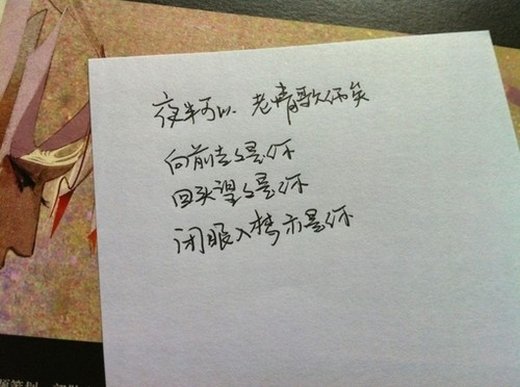 夜半可以 老情歌
向前去是你
回头望是你
闭眼入梦亦是你